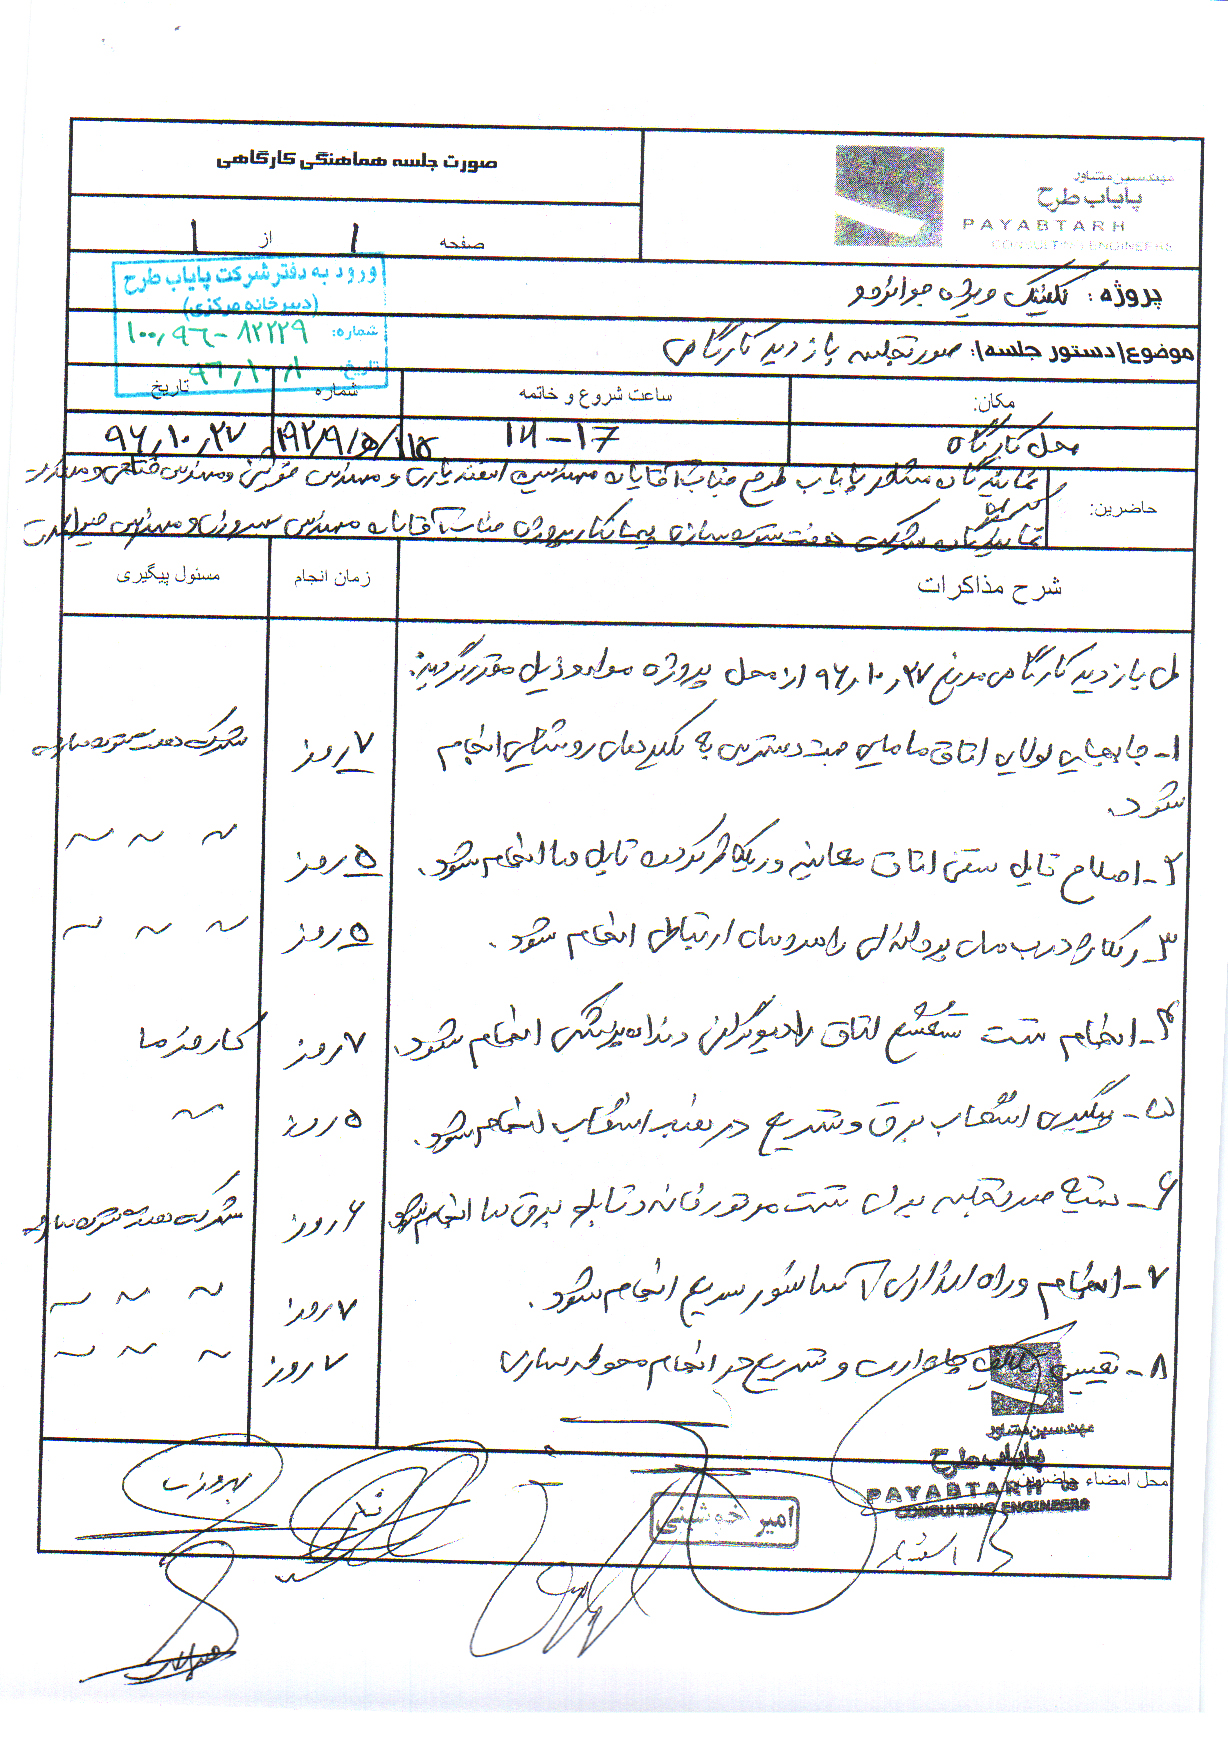 صورت جلسه هماهنگی کارگاهی
صفحه ۱ از ۱
مهندسین مشاور
پایاب طرح
PAYABTARH
CONSULTING ENGINEERS
ورود به دفتر شرکت پایاب طرح
(دبیرخانه مرکزی)
شماره: ۱۰۰٫۹۶-۸۲۲۲۹
تاریخ:
پروژه: کلینیک ویژه جوانرود
موضوع/دستور جلسه: صورتجلسه بازدید کارگاهی
مکان: ساعت شروع و خاتمه شماره تاریخ
محل کارگاه ۱۴-۱۶ ۹۶٫۱۰٫۲۷
حاضرین: نمایندگان مشاور پایاب طرح جناب آقایان مهندسین اسفندیاری و مهندس خوشنی و مهندس فتاحی و مهندس
نمایندگان شرکت هفت ستون سازه پیمانکار پروژه جناب آقایان مهندس بهروزی و مهندس
شرح مذاکرات زمان انجام مسئول پیگیری
طی بازدید کارگاهی مورخ ۹۶٫۱۰٫۲۷ از محل پروژه موارد ذیل مقرر گردید:
۱- جابجایی لولای اتاق مامایی جهت دسترسی به کلیدهای روشنایی انجام ۷ روز شرکت هفت ستون سازه
شود.
۲- اصلاح تایل سقفی اتاق معاینه و ریگلاژ کردن تایل ها انجام شود. ۵ روز ~ ~ ~
۳- رگلاژ درب های راهروهای ارتباطی انجام شود. ۵ روز ~ ~ ~
۴- انجام تست تشعشع اتاق رادیوگرافی دندانپزشکی انجام شود. ۷ روز کارفرما
۵- پیگیری انشعاب برق و تسریع در نصب انشعاب انجام شود. ۵ روز ~
۶- تهیه صورتجلسه برای تست موتورخانه و تابلو برق ها انجام شود ۶ روز شرکت هفت ستون سازه
۷- انجام و راه اندازی آسانسور سریع انجام شود. ۷ روز ~ ~ ~
۸- تعیین تکلیف و تسریع در انجام محوطه سازی ۷ روز ~ ~ ~
محل امضاء حاضرین
مهندسین مشاور
پایاب طرح
PAYABTARH
CONSULTING ENGINEERS
امیر خوشنی
بهروزی